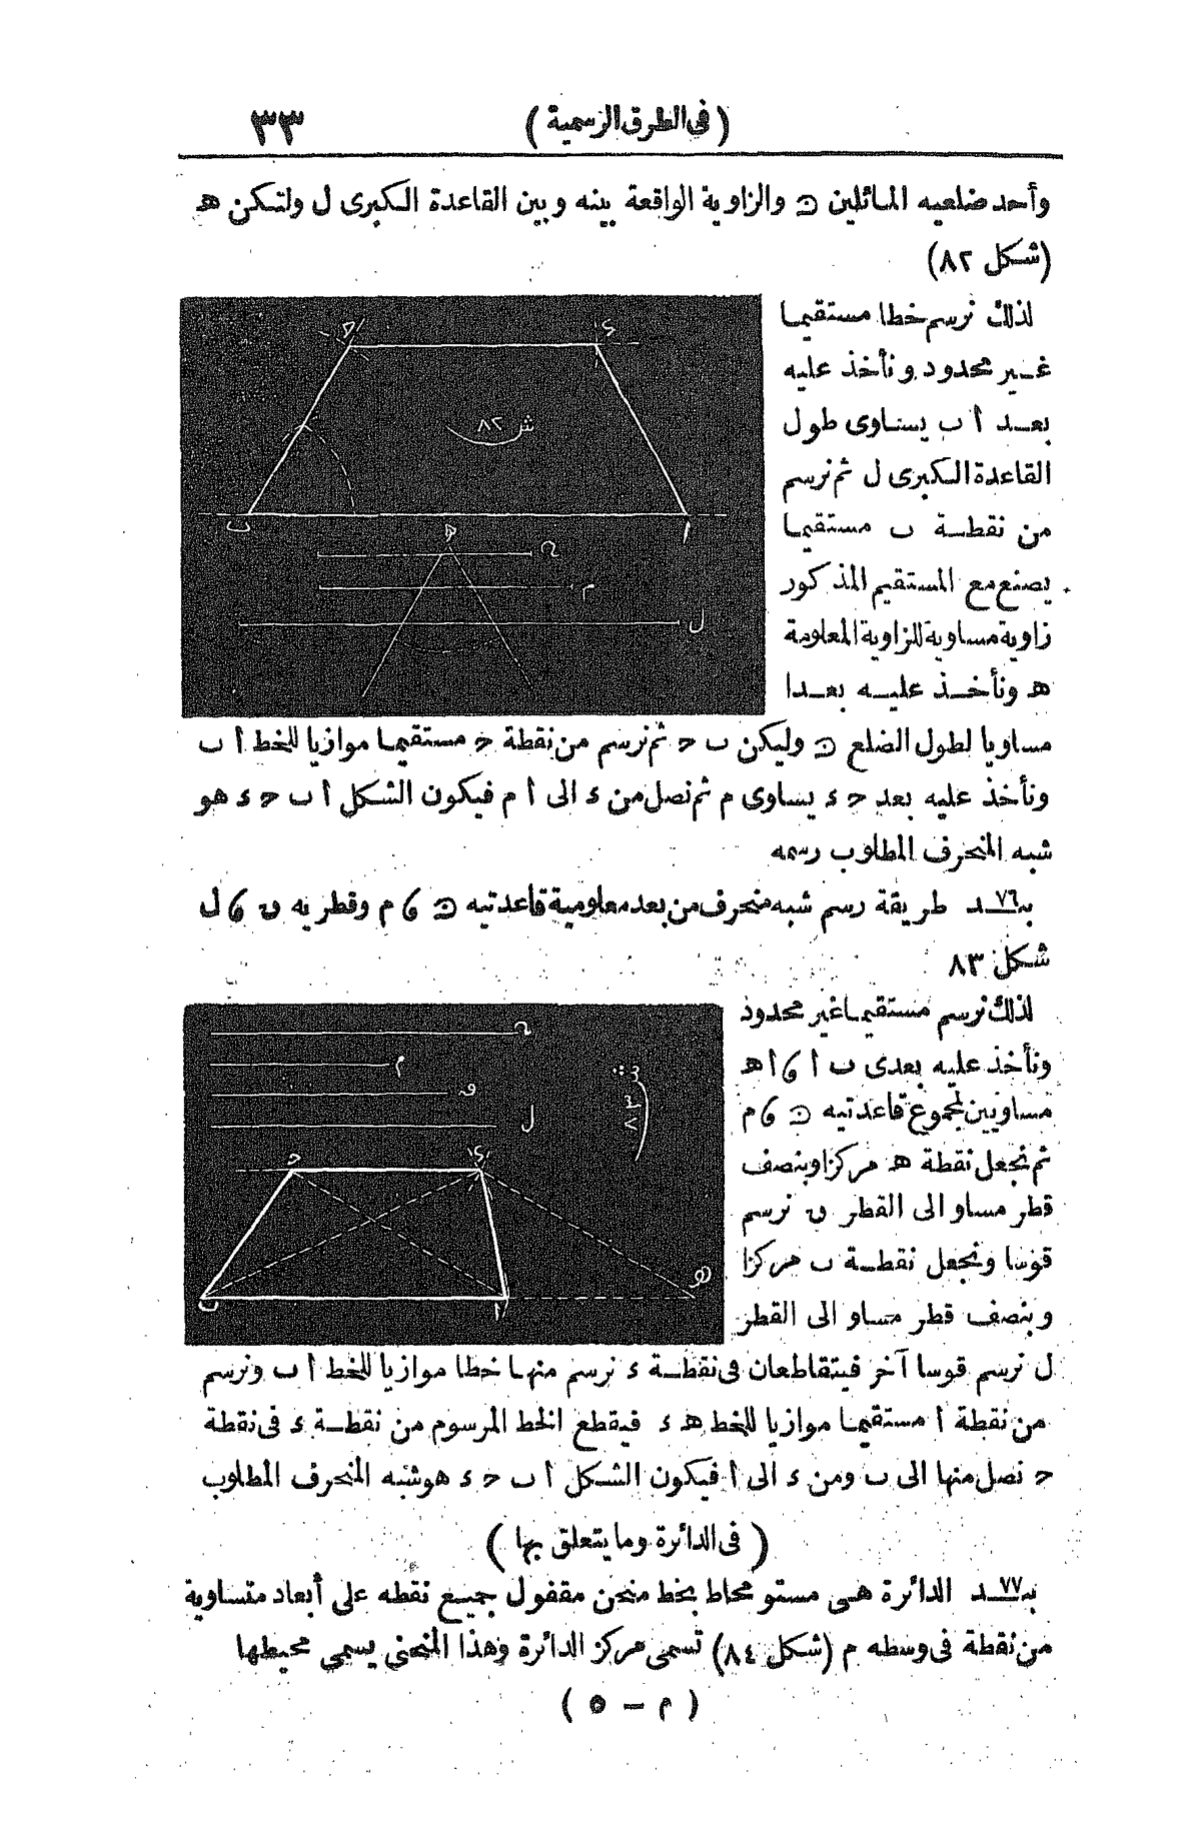 (فى الطرق الرسمية) ٣٣
وأحد ضلعيه المائلين ﺩ والزاوية الواقعة بينه وبين القاعدة الكبرى ل ولتكن ه
(شكل ٨٢)
لذلك نرسم خطا مستقيما
غير محدود ونأخذ عليه
بعد ا ب يساوى طول
القاعدة الكبرى ل ثم نرسم
من نقطة ب مستقيما
يصنع مع المستقيم المذكور
زاوية مساوية للزاوية المعلومة
ه ونأخذ عليه بعدا
ح د
ش ٨٢
ب ا
ه
م
ل
مساويا لطول الضلع وليكن ب ح ثم نرسم من نقطة ح مستقيما موازيا للخط أ ب
ونأخذ عليه بعد ح ء يساوى م ثم نصل من ء الى أ م فيكون الشكل أ ب ح ء هو
شبه المنحرف المطلوب رسمه
بند ٧٦ طريقة رسم شبه منحرف من بعد معلومية قاعدتيه و م وقطريه ن و ل
شكل ٨٣
لذلك نرسم مستقيما غير محدود
ونأخذ عليه بعدى ب أ و أ ه
مساويين لمجموع قاعدتيه و م
ثم نجعل نقطة ه مركزا وبنصف
قطر مساو الى القطر ن نرسم
قوسا ونجعل نقطة ب مركزا
وبنصف قطر مساو الى القطر
م
ل
ش ٨٣
ح ء
ب ا ه
ل نرسم قوسا آخر فيتقاطعان فى نقطة ء نرسم منها خطا موازيا للخط أ ب ونرسم
من نقطة أ مستقيما موازيا للخط ه ء فيقطع الخط المرسوم من نقطة ء فى نقطة
ح نصل منها الى ب ومن ء الى أ فيكون الشكل أ ب ح ء هو شبه المنحرف المطلوب
(فى الدائرة وما يتعلق بها)
بند ٧٧ الدائرة هى مستو محاط بخط منحن مقفول جميع نقطه على أبعاد متساوية
من نقطة فى وسطه م (شكل ٨٤) تسمى مركز الدائرة وهذا المنحنى يسمى محيطها
(م - ٥)